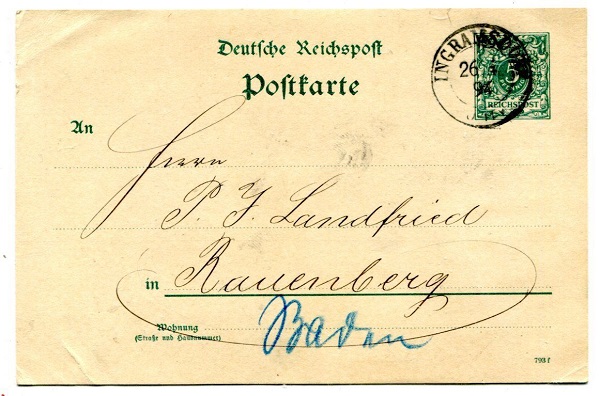 Deutsche Reichspost
Postkarte
5
REICHSPOST
26
94
An
Herrn
P. J. Landfried
in Rauenberg
Baden
Wohnung
(Straße und Hausnummer)
793 f